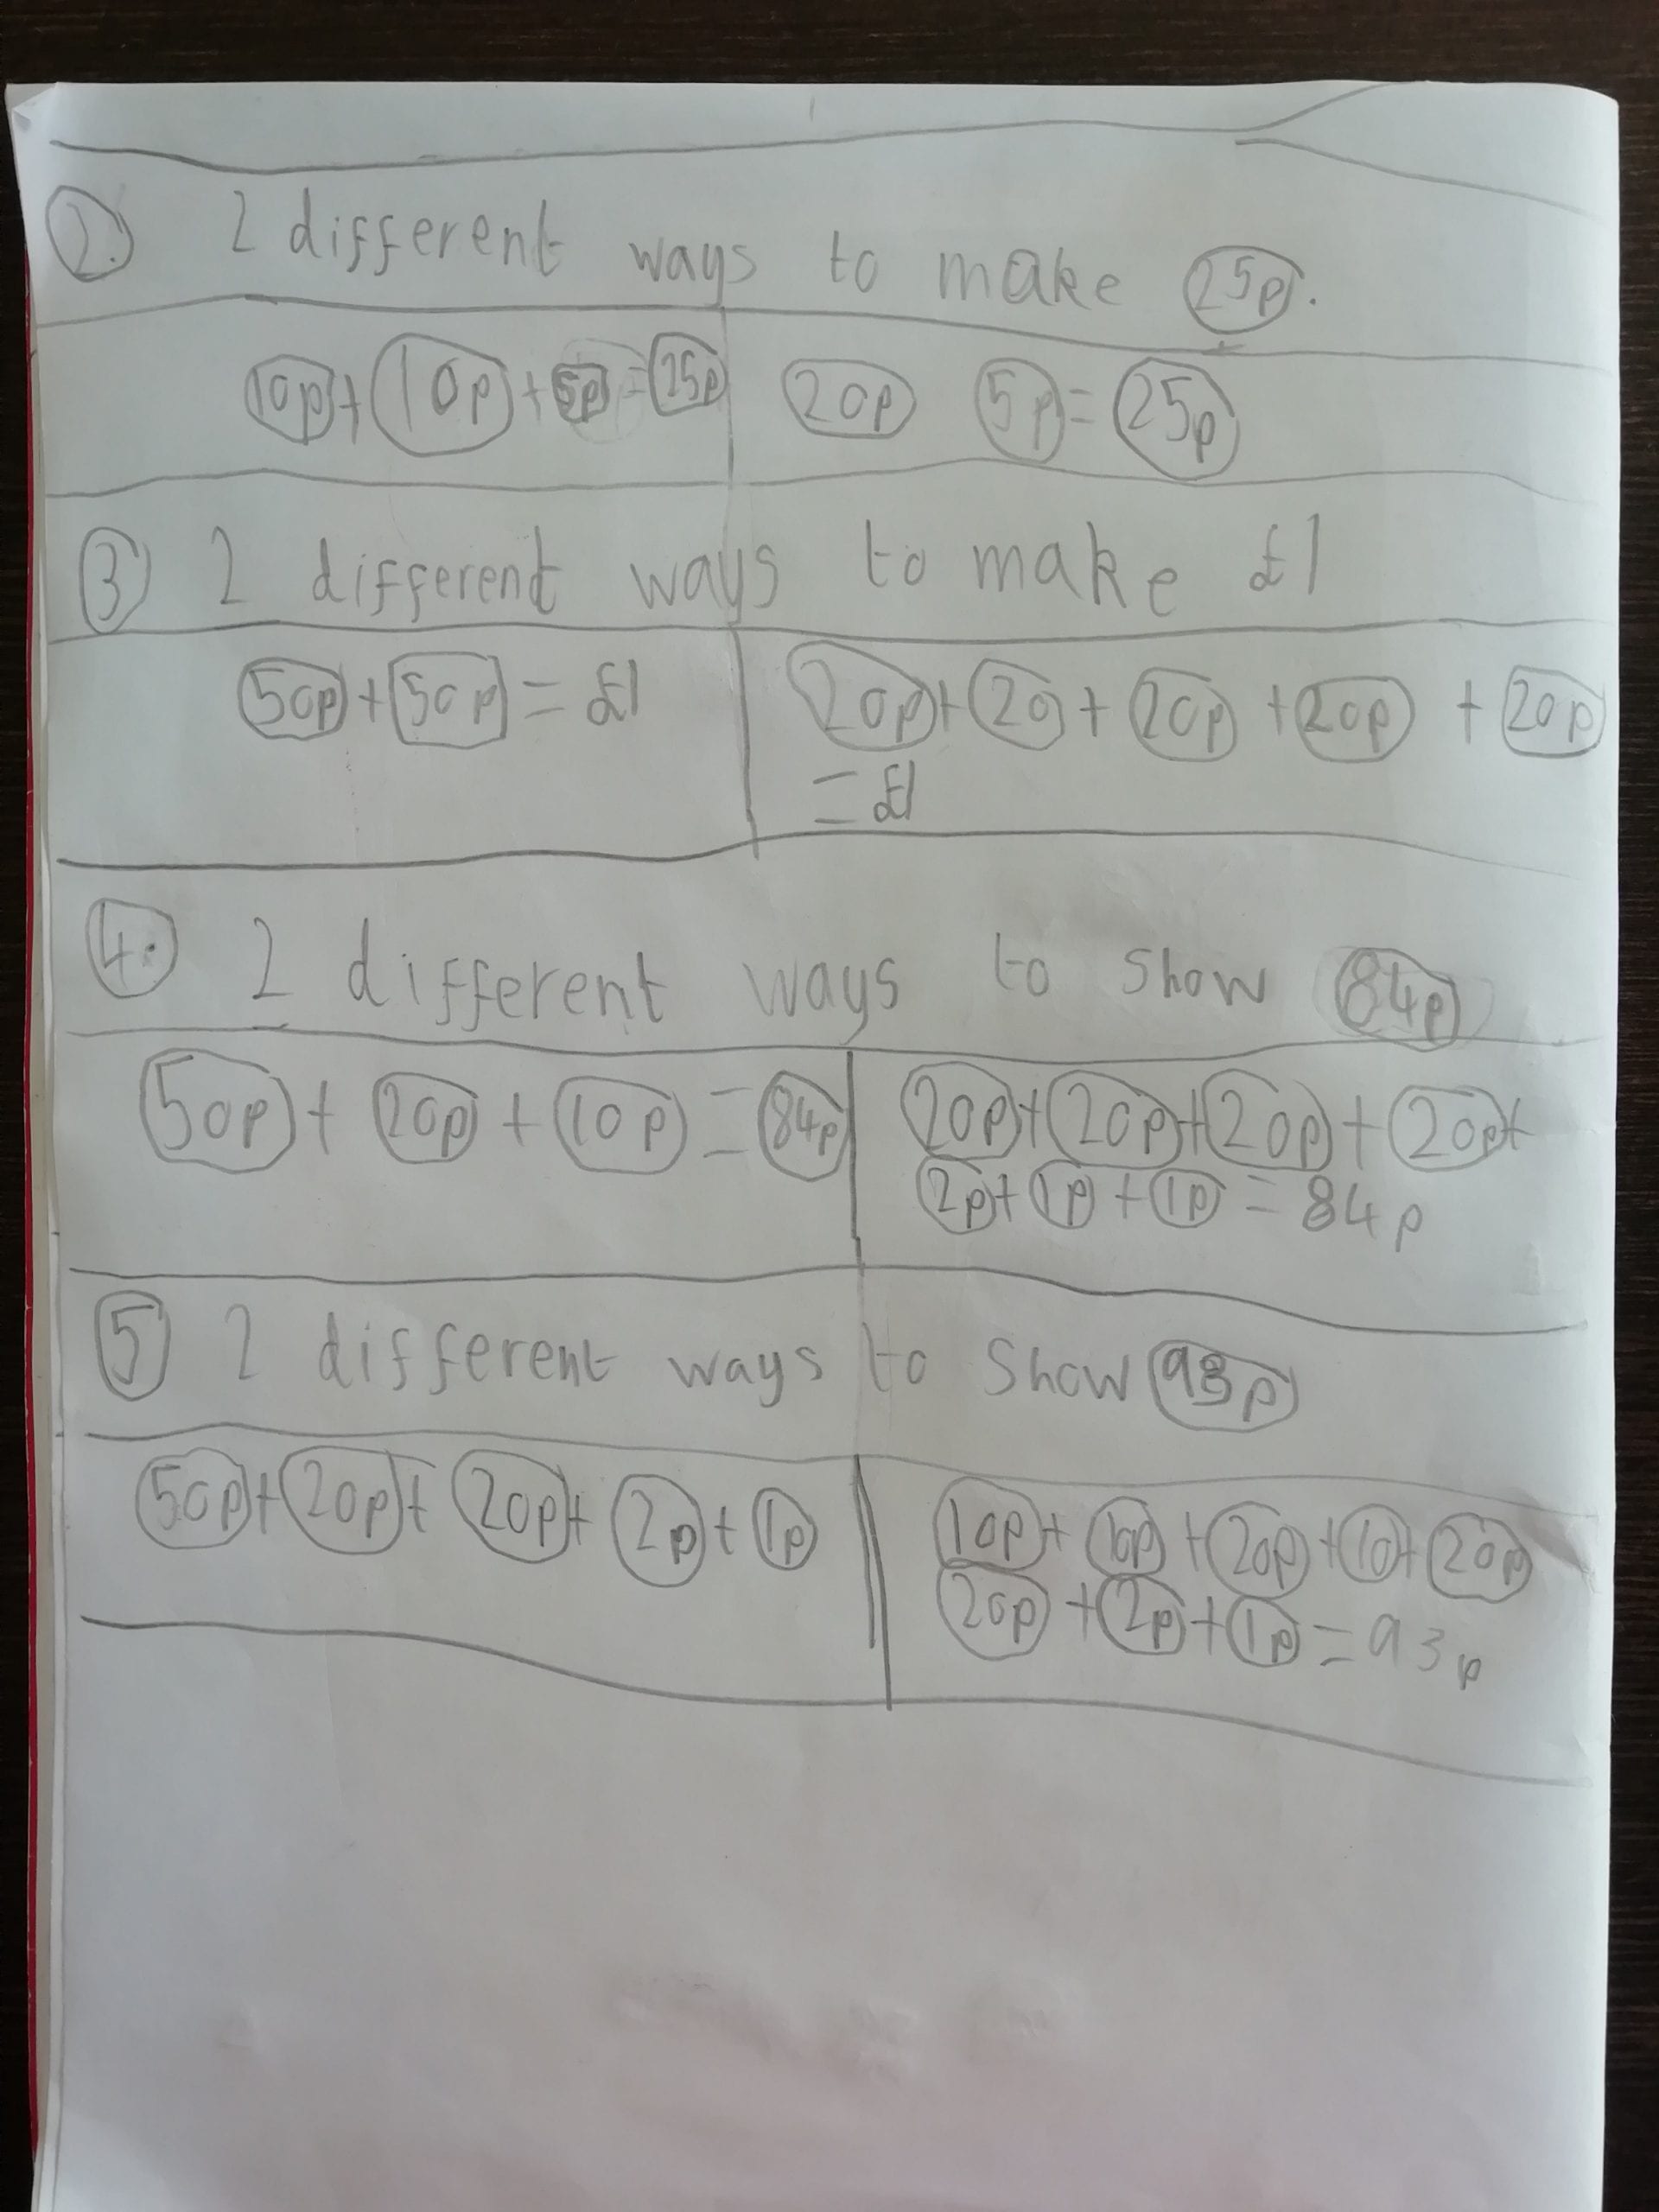 2. 2 different ways to make 25p.
10p + 10p + 5p = 25p
20p 5p = 25p
3 2 different ways to make £1
50p + 50p = £1
20p + 20 + 20p + 20p + 20p
= £1
4. 2 different ways to show 84p
50p + 20p + 10p = 84p
20p + 20p + 20p + 20p +
2p + 1p + 1p = 84p
5 2 different ways to show 93p
50p + 20p + 20p + 2p + 1p
10p + 10p + 20p + 10 + 20p
20p + 2p + 1p = 93p